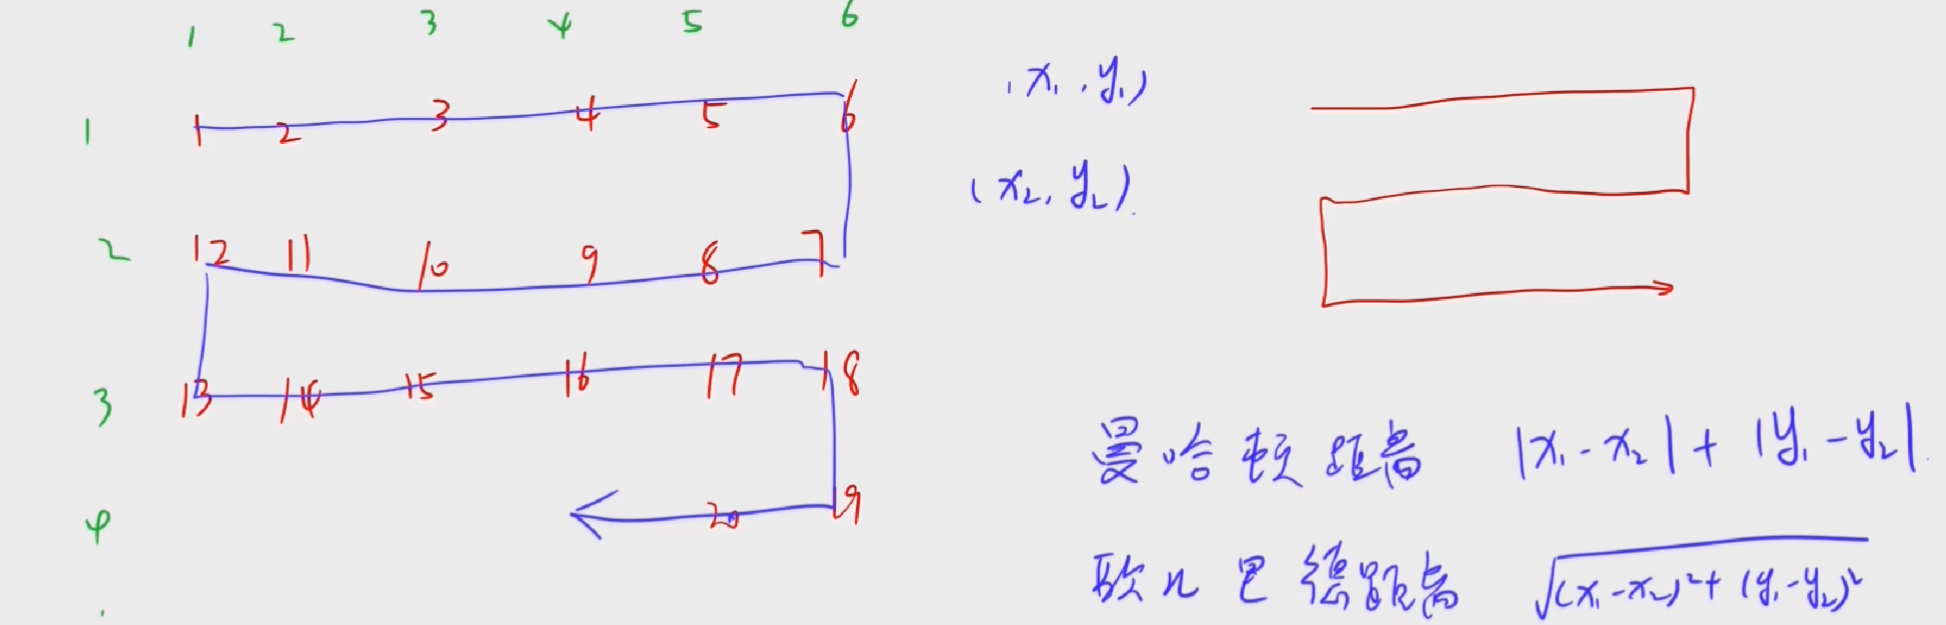 1 2 3 4 5 6
1 1 2 3 4 5 6
2 12 11 10 9 8 7
3 13 14 15 16 17 18
4 20 19
(x₁, y₁)
(x₂, y₂)
曼哈顿距离 |x₁-x₂|+|y₁-y₂|
欧几里德距离 √(x₁-x₂)²+(y₁-y₂)²